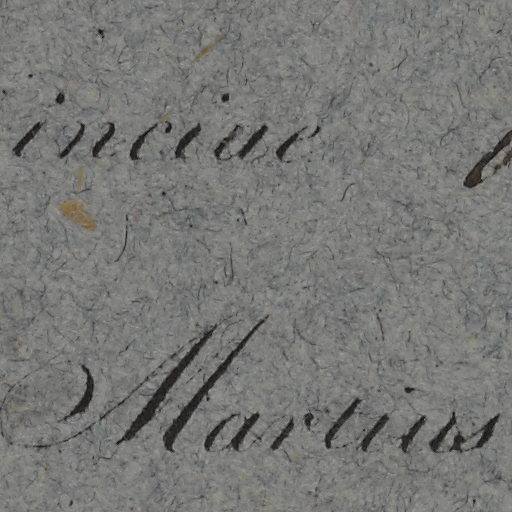 inciue
Martius